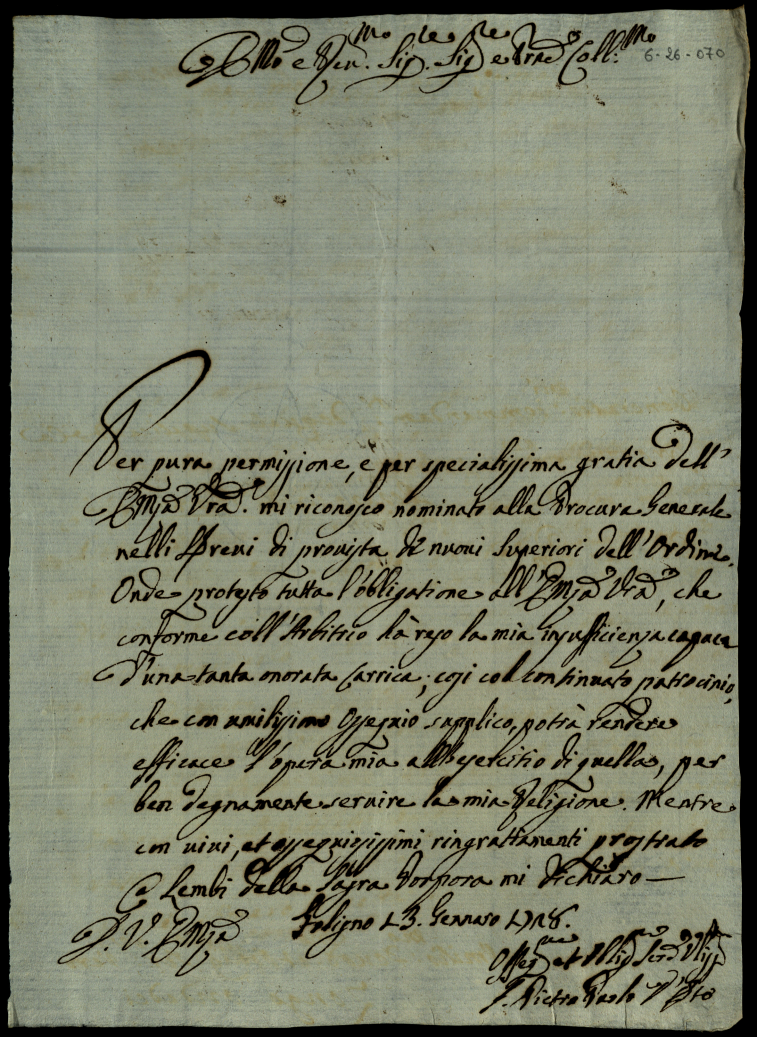 Em.mo e Rev.mo Sig.re Sig.re e Prõne Coll.mo 6-26-070
Per pura permissione, e per specialissima gratia dell'
Em.za V.ra mi riconosco nominato alla Procura Generale
nelli Brevi di provista de nuovi Superiori dell'Ordine.
Onde protesto tutta l'obligatione all'Em.za V.ra, che
conforme coll'Arbitrio hà reso la mia insufficienza capace
d'una tanta onorata Carrica; così col continuato patrocinio,
che con umilissimo ossequio supplico, potrà rendere
efficace l'opera mia all'esercitio di quella, per
ben degnamente servire la mia Religione. Mentre
con vivi, et ossequiosissimi ringratiamenti prostrato
a Lembi della Sagra Porpora mi dichiaro —
D. V. Em.za Foligno 13. Gennaro 17
et Obl.
F. Pietro Paolo